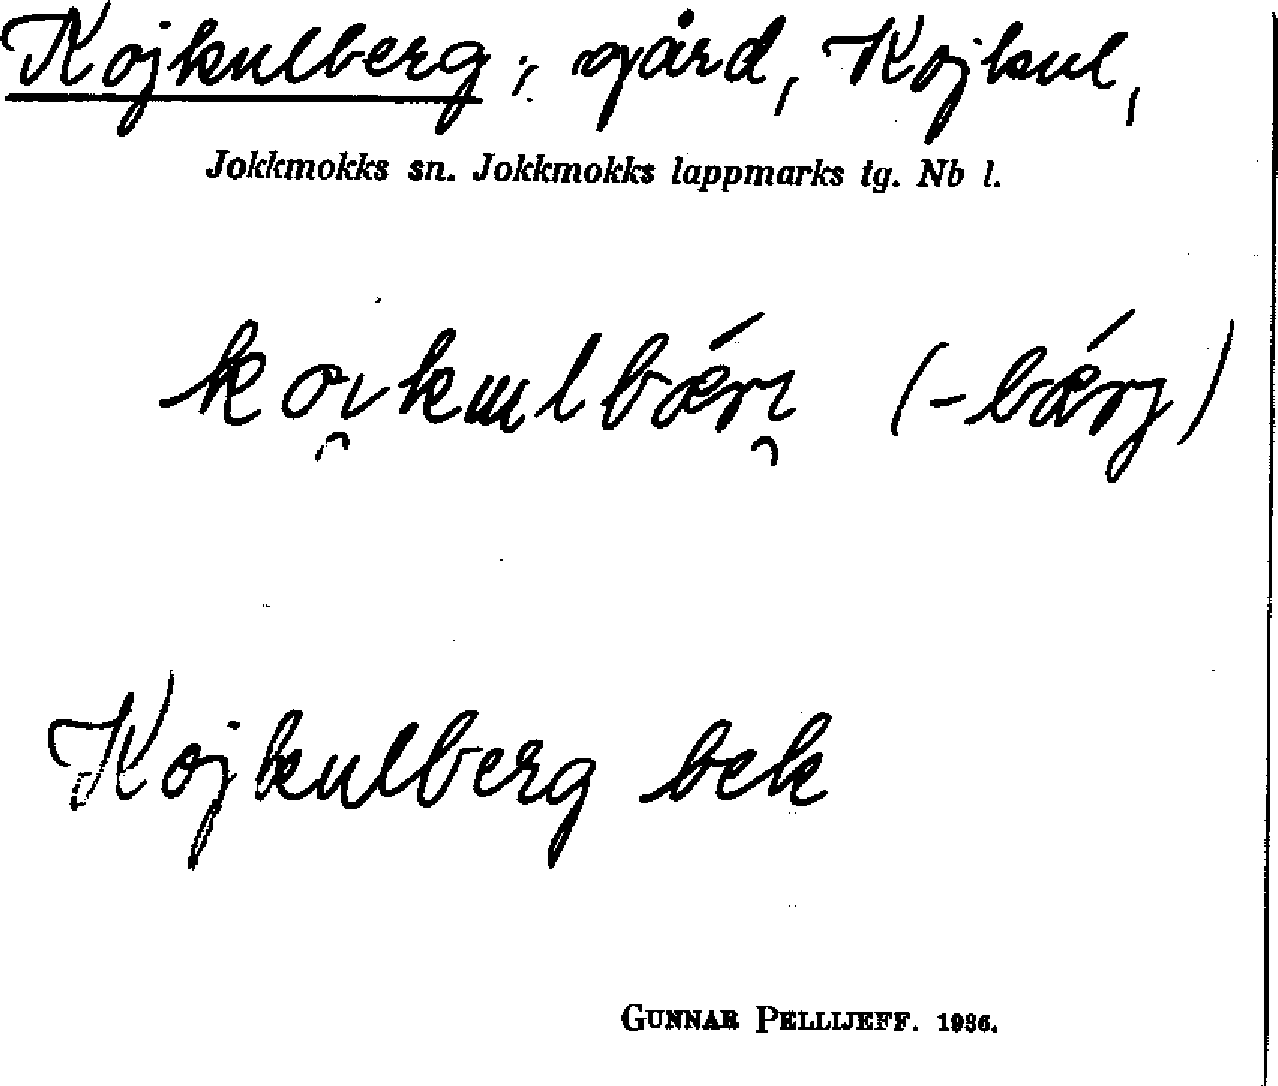 Kojkulberg, gård, Kojkul,
Jokkmokks sn. Jokkmokks lappmarks tg. Nb l.
ko̯i̯kulbǽri̯ (-bǽrj)
Kojkulberg bek
GUNNAR PELLIJEFF. 1936.